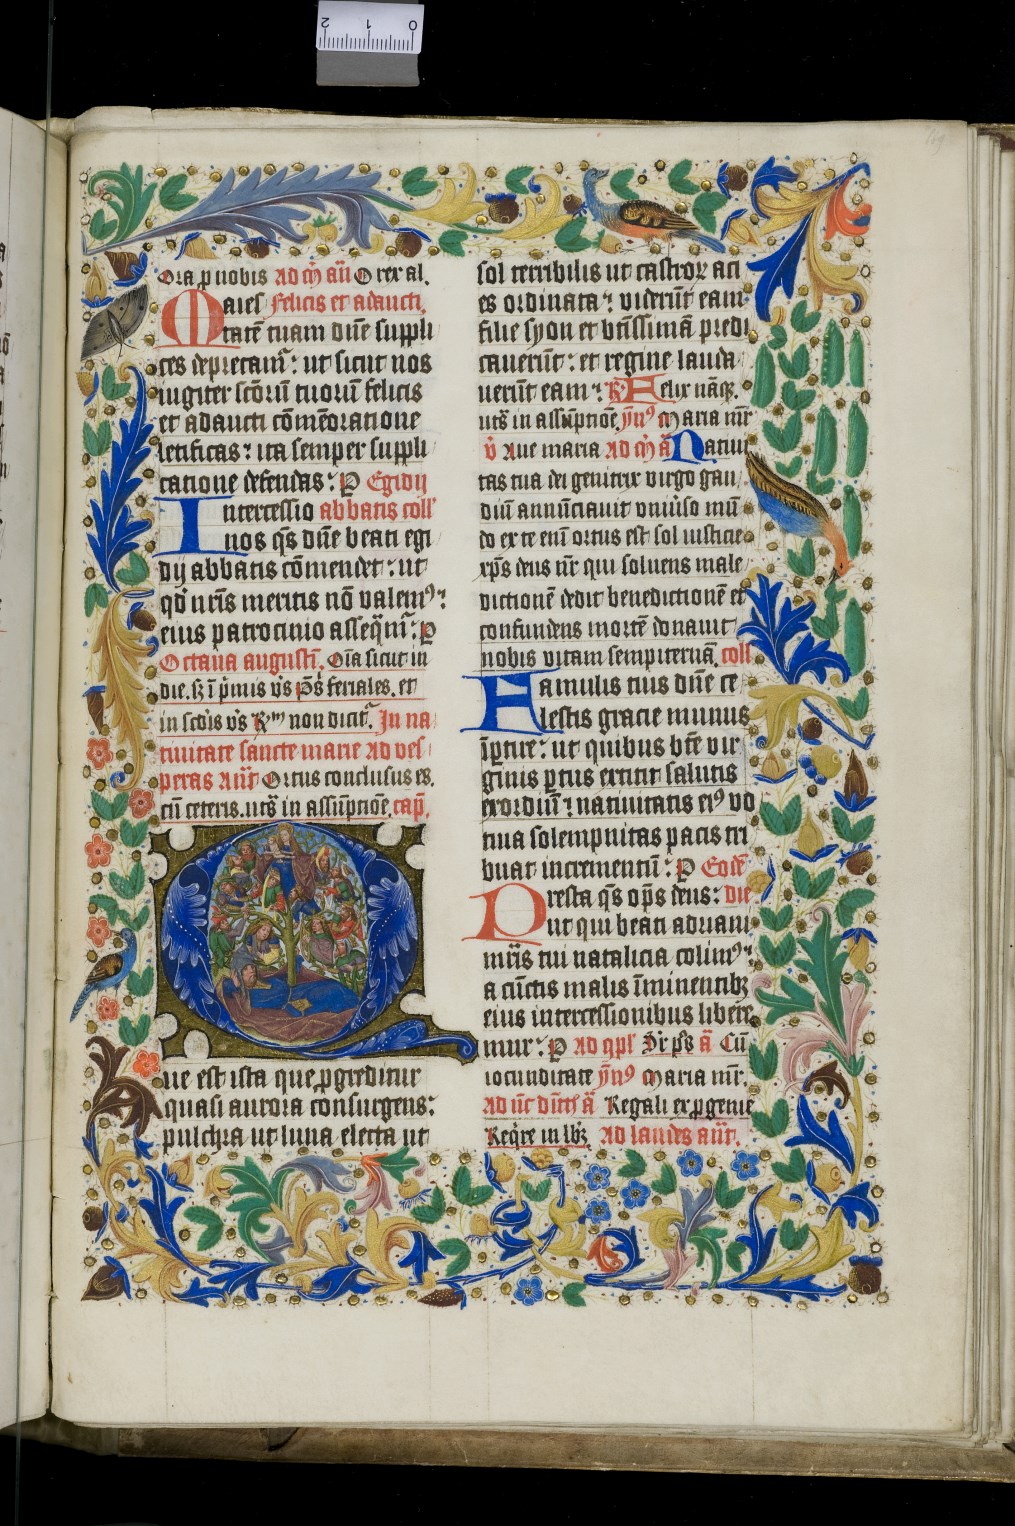 Ora ꝑ nobis Ad m̄ añ O rex al.
Maies Felicis et adaucti.
tatē tuam dn̄e suppli
ces deprecamᷣ: ut sicut nos
iugiter scōrū tuorū felicis
et adaucti cōmēoratione
letificas: ita semper suppli
catione defendas: P Egidij
Intercessio abbatis coll'
nos qs̄ dn̄e beati egi
dij abbatis cōmendet: ut
qd̄ nr̄is meritis nō valemꝰ:
eius patrocinio asseq̄mᷣ: P
Octaua augustī. Oīa sicut in
die. sꝫ ī p̄mis v̄s pō̄s feriales. et
in scd̄is v̄s R̄m non dicitᷣ. In na
tiuitate sancte marie Ad ves
peras Añ Ortus conclusus es.
cū ceteris. ut s̄ in assūptiōe. cap̄.
Que est ista que ꝓgreditur
quasi aurora consurgens:
pulchra ut luna electa ut
sol terribilis ut castroꝝ aci
es ordinata: viderūt eam
filie syon et bt̄issimā predi
cauerūt: et regine lauda
uerūt eam: R̄ Felix nāqꝫ.
ut s̄ in assūptiōe. ym̄ꝰ Maria mr̄
v̄ Aue maria Ad m̄ ā Natiui
tas tua dei genitrix virgo gau
diū annūciauit vniūso mū
do ex te enī ortus est sol iusticie
xp̄s deus nr̄ qui soluens male
dictionē dedit benedictionē et
confundens mortē donauit
nobis vitam sempiternā. coll
Famulis tuis dn̄e ce
lestis gracie munus
īꝑtire: ut quibus bt̄e vir
ginis ꝑtus extitit salutis
exordiū: natiuitatis eiꝰ vo
tiua solempnitas pacis tri
buat incrementū: P Eodē
Presta qs̄ op̄s deus: die
ut qui beati adriani
mr̄is tui natalicia colimꝰ:
a cūctis malis īminentibꝫ
eius intercessionibus libere
mur: P Ad ꝯpl' Sr̄ ps̄ ā Cū
iocunditate ym̄ꝰ Maria mr̄.
Ad īuit dn̄ic̄ ā Regali ex ꝓgenie
Req̄re in lbꝫ Ad laudes añ.
2 1 0